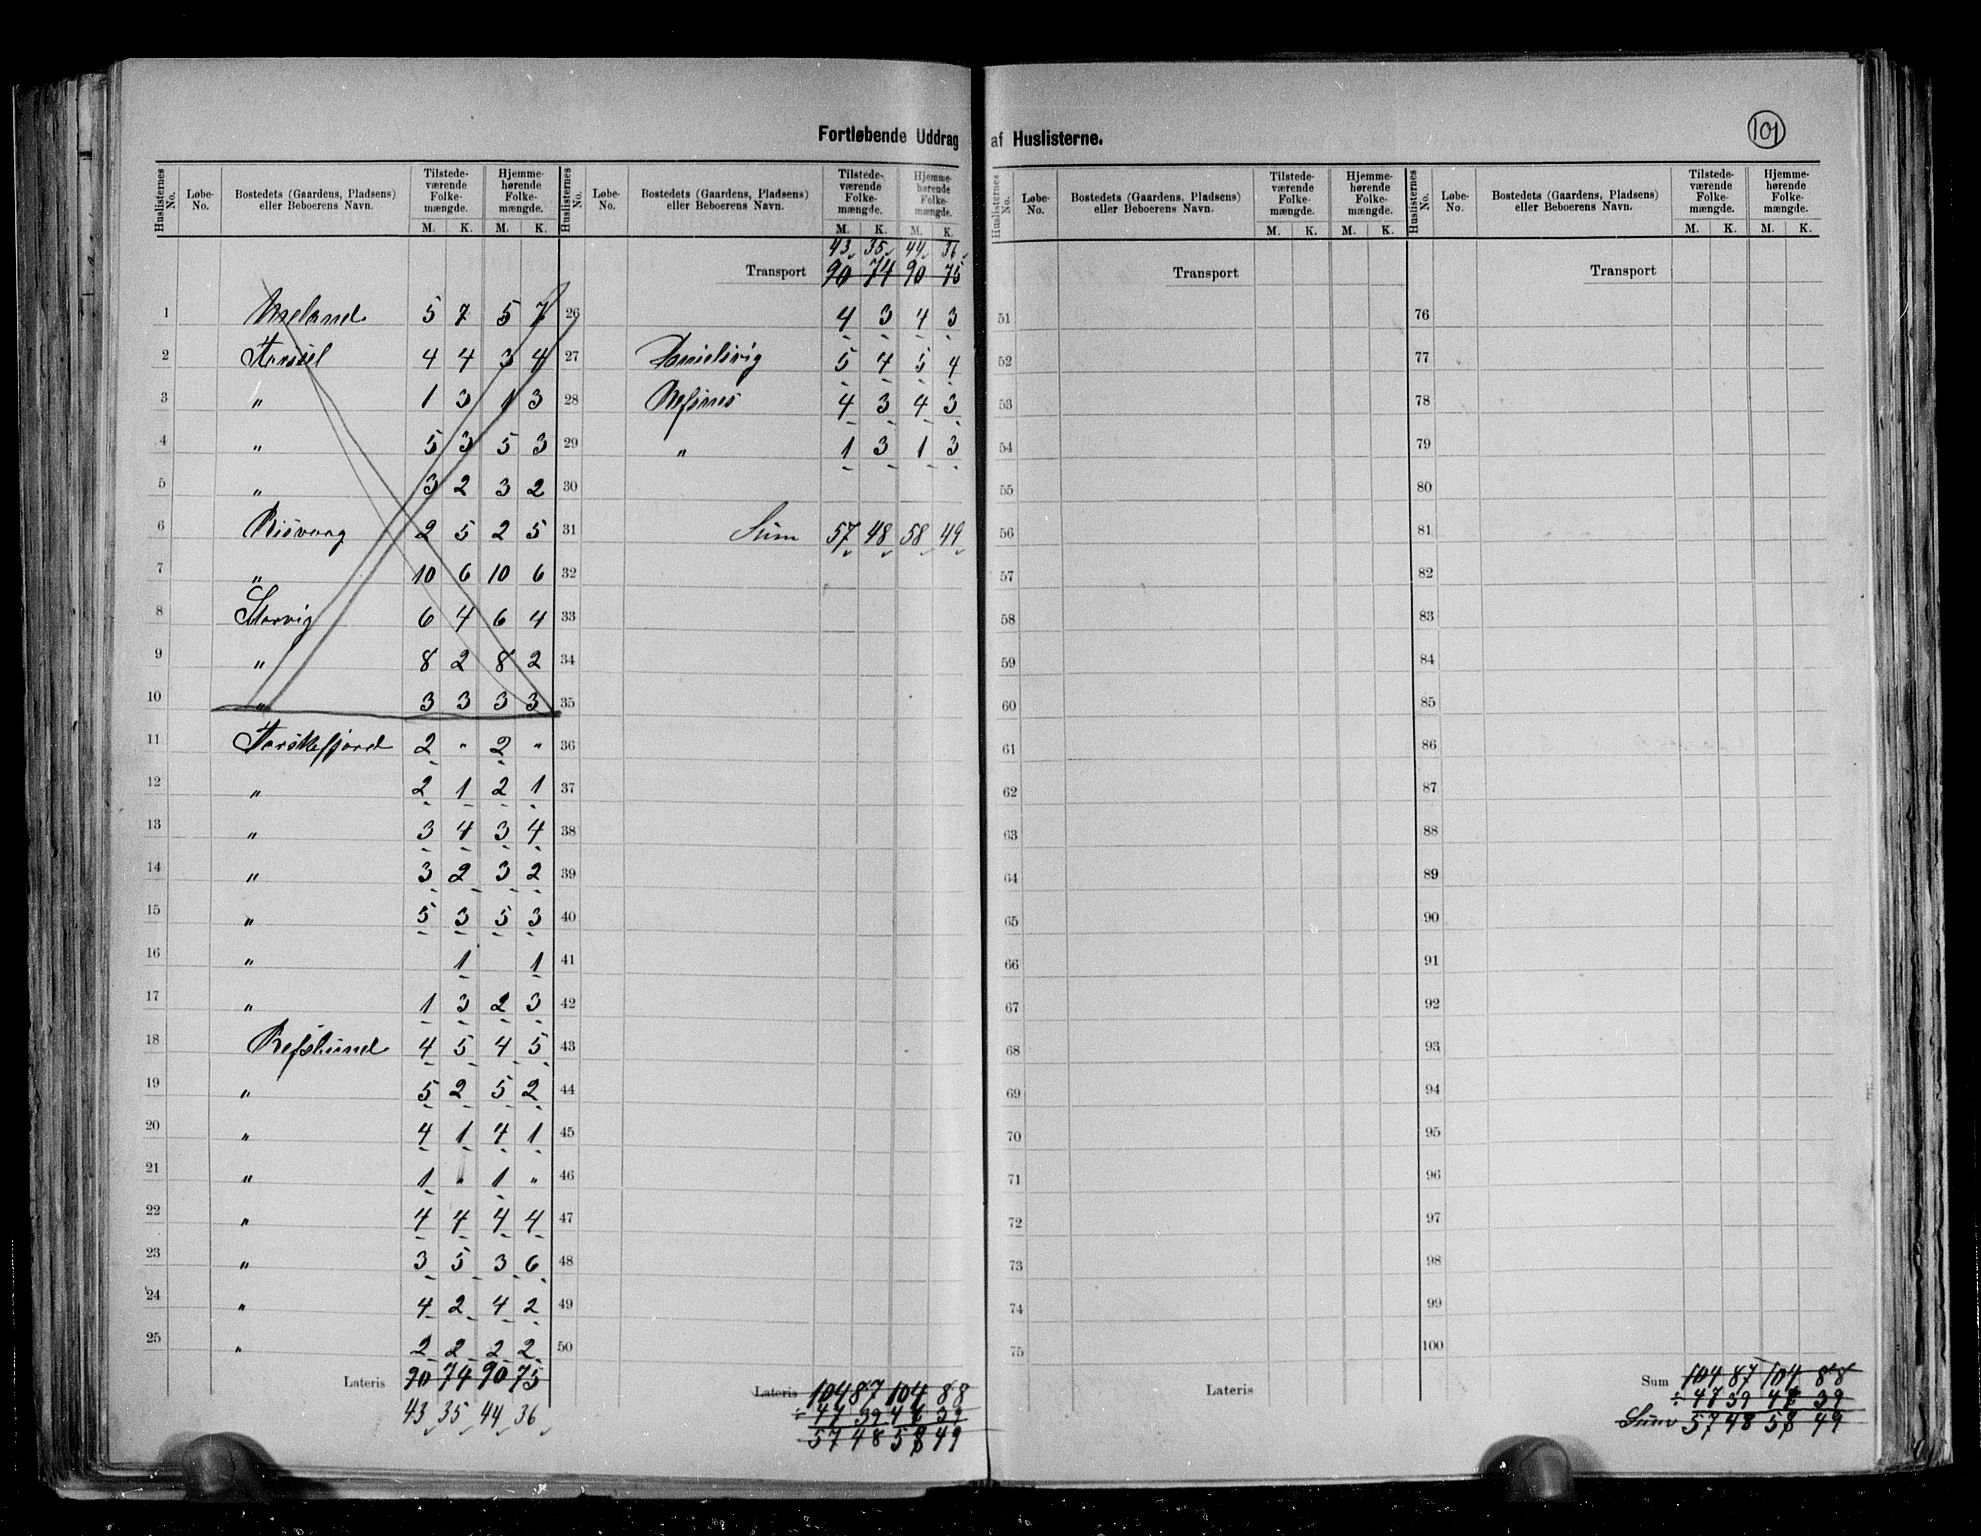 Fortløbende Uddrag af Huslisterne.
101
Huslisternes No. Løbe-No. Bostedets (Gaardens, Pladsens) eller Beboerens Navn. Tilstedeværende Folkemængde. M. K. Hjemmehørende Folkemængde. M. K.
1 Meland 5 7 5 7
2 4 4 3 4
3 " 1 3 1 3
4 " 5 3 5 3
5 " 3 2 3 2
6 Risvaag 2 5 2 5
7 " 10 6 10 6
8 Storvig 6 4 6 4
9 " 8 2 8 2
10 " 3 3 3 3
11 Torskefjord 2 " 2 "
12 " 2 1 2 1
13 " 3 4 3 4
14 " 3 2 3 2
15 " 5 3 5 3
16 " 1 1
17 " 1 3 2 3
18 Refslund 4 5 4 5
19 " 5 2 5 2
20 " 4 1 4 1
21 " 1 " 1 "
22 " 4 4 4 4
23 " 3 5 3 6
24 " 4 2 4 2
25 " 2 2 2 2
Lateris 90 74 90 75
43 35 44 36
Huslisternes No. Løbe-No. Bostedets (Gaardens, Pladsens) eller Beboerens Navn. Tilstedeværende Folkemængde. M. K. Hjemmehørende Folkemængde. M. K.
43 35 44 36
Transport 90 74 90 75
26 4 3 4 3
27 5 4 5 4
28 Refsnes 4 3 4 3
29 " 1 3 1 3
30
31 Sum 57 48 58 49
32
33
34
35
36
37
38
39
40
41
42
43
44
45
46
47
48
49
50
Lateris 104 87 104 88
÷ 47 39 46 39
57 48 58 49
Huslisternes No. Løbe-No. Bostedets (Gaardens, Pladsens) eller Beboerens Navn. Tilstedeværende Folkemængde. M. K. Hjemmehørende Folkemængde. M. K.
Transport
51
52
53
54
55
56
57
58
59
60
61
62
63
64
65
66
67
68
69
70
71
72
73
74
75
Lateris
Huslisternes No. Løbe-No. Bostedets (Gaardens, Pladsens) eller Beboerens Navn. Tilstedeværende Folkemængde. M. K. Hjemmehørende Folkemængde. M. K.
Transport
76
77
78
79
80
81
82
83
84
85
86
87
88
89
90
91
92
93
94
95
96
97
98
99
100
Sum 104 87 104 88
÷ 47 39 46 39
Sum 57 48 58 49